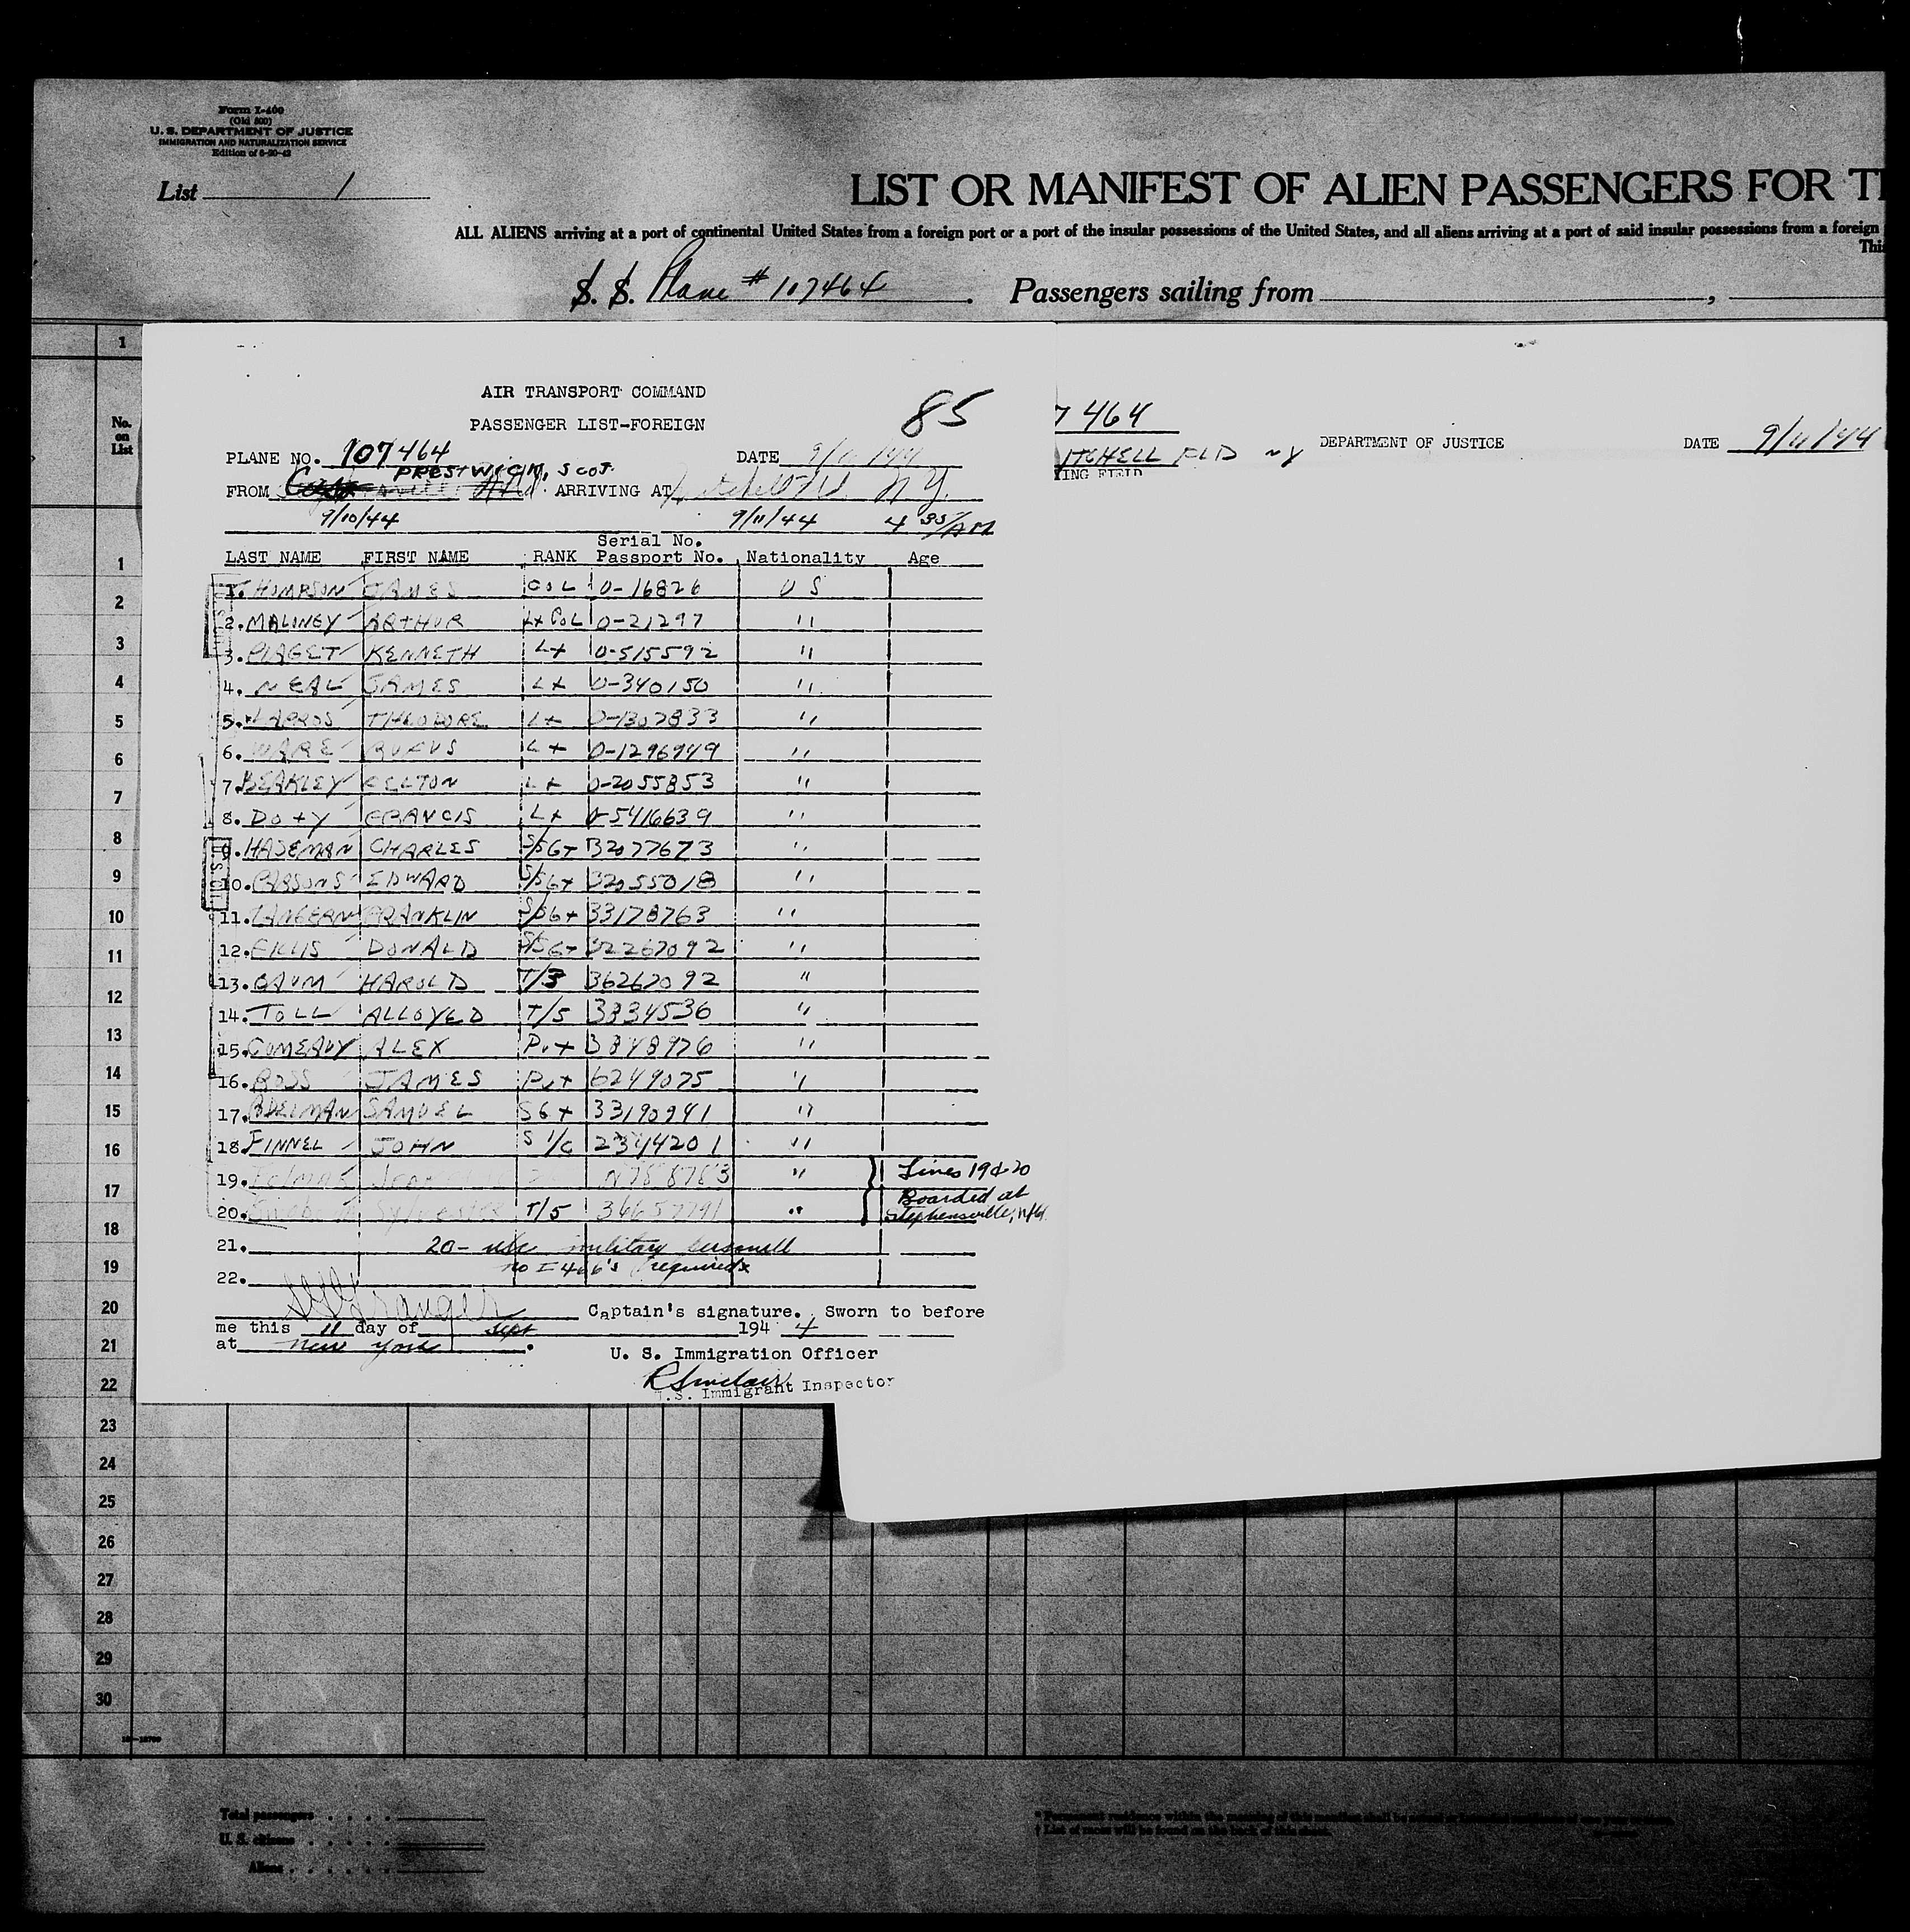 Form I-400
(Old 500)
U. S. DEPARTMENT OF JUSTICE
IMMIGRATION AND NATURALIZATION SERVICE
Edition of 6-20-42
List 1
LIST OR MANIFEST OF ALIEN PASSENGERS FOR
ALL ALIENS arriving at a port of continental United States from a foreign port or a port of the insular possessions of the United States, and all aliens arriving at a port of said insular possessions from a foreign
S. S. Plane # 107464 Passengers sailing from
No. on List
AIR TRANSPORT COMMAND
85
PASSENGER LIST-FOREIGN
PLANE NO. 107464 DATE 9/11/44
PRESTWICK, SCOT.
FROM ARRIVING AT N.Y.
9/10/44 9/11/44 4 35/AM
Serial No.
LAST NAME FIRST NAME RANK Passport No. Nationality Age
1. THOMPSON JAMES COL O-16826 US
2. MALONEY ARTHUR Lt COL O-21297 "
3. PIAGET KENNETH Lt O-515592 "
4. NEAL JAMES Lt O-340150 "
5. THEODORE Lt O-1307833 "
6. WARE RUFUS Lt O-1296949 "
7. BEAKLEY ELLTON Lt O-2055853 "
8. DOTY FRANCIS Lt O-5416639 "
9. HASEMAN CHARLES S/SGT 32077673 "
10. PARSONS EDWARD S/SGT 32055018 "
11. FRANKLIN S/SGT 33178763 "
12. DONALD S/SGT 32267092 "
13. BAUM HAROLD T/3 36267092 "
14. TOLL ALLOYED T/5 3834536 "
15. COMEAUX ALEX Pvt 3848976 "
16. ROSS JAMES Pvt 6249075 "
17. ADELMAN SAMUEL SGT 33190941 "
18. FINNEL JOHN S 1/C 2344201 "
19. N788783 "
20. Sylvester T/5 36657791 "
Lines 19 & 20
Boarded at
Stephensville, Nfld.
21. 20 - USC military personell
no I-466's required
22.
Captain's signature. Sworn to before
me this 11 day of Sept 1944
at New York.
U. S. Immigration Officer
R Sinclair
U.S. Immigrant Inspector
7464
ITCHELL FLD NY
YING FIELD
DEPARTMENT OF JUSTICE
DATE 9/11/44
1
1
2
3
4
5
6
7
8
9
10
11
12
13
14
15
16
17
18
19
20
21
22
23
24
25
26
27
28
29
30
Total passengers
U. S. citizens
Aliens
† List of races will be found on the back of this sheet.